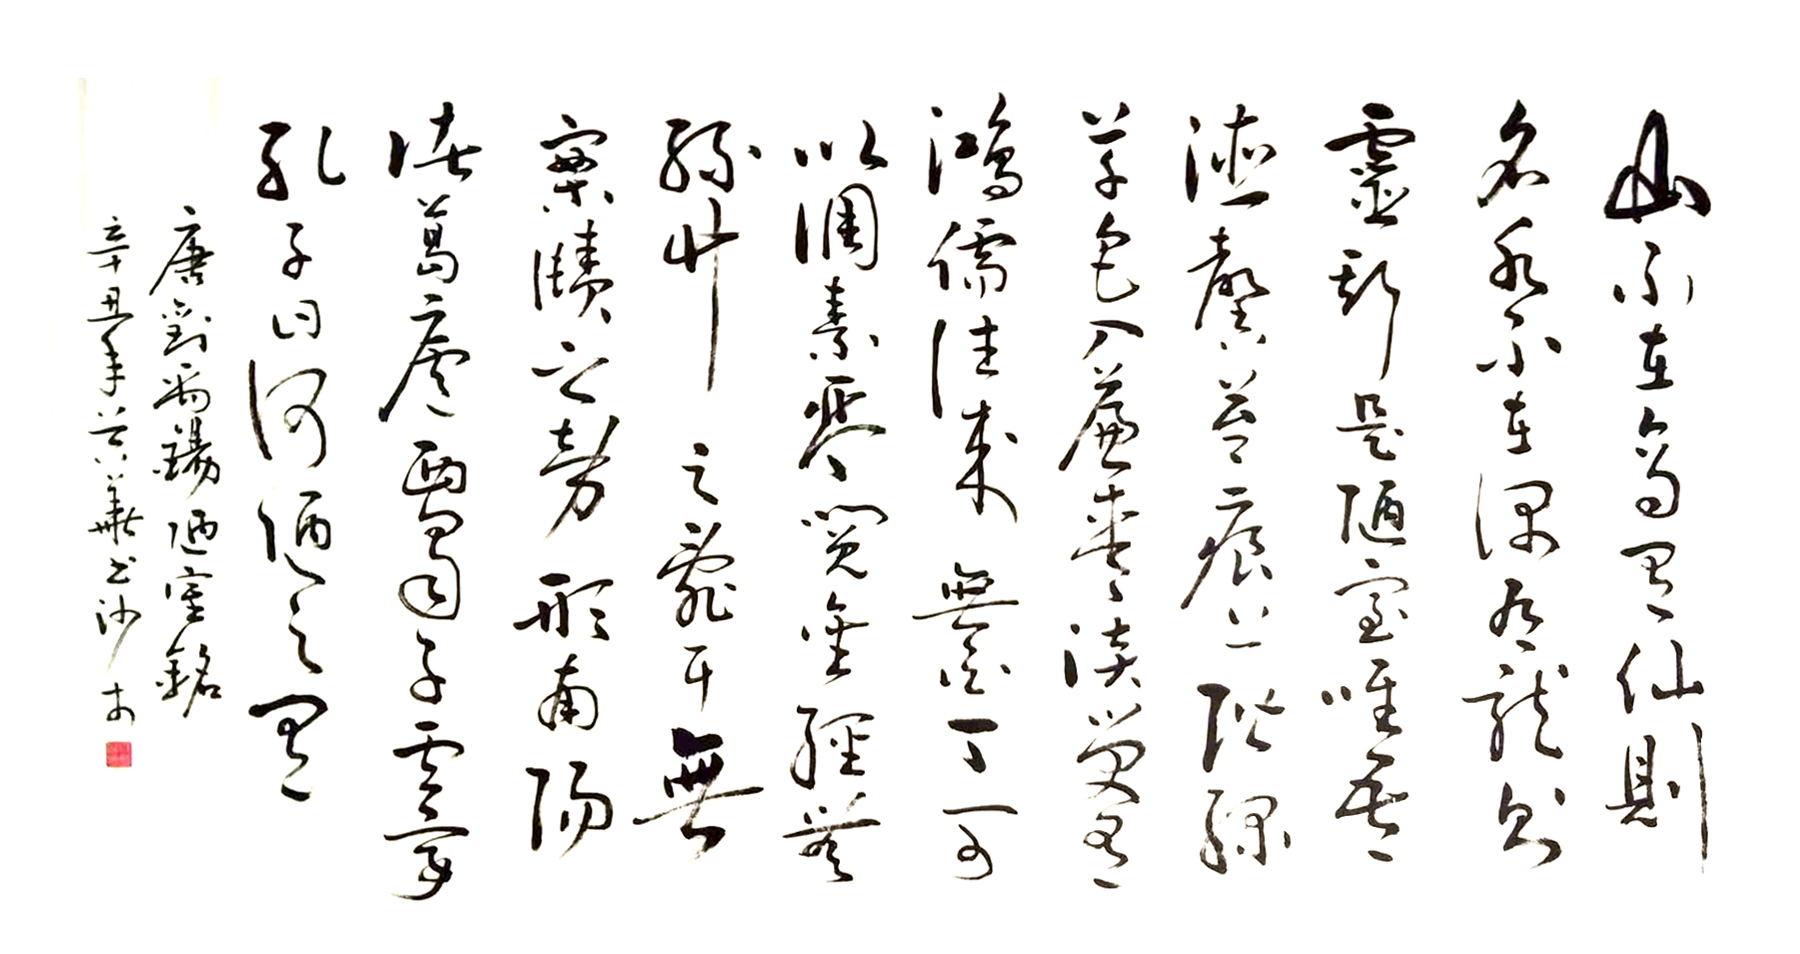 山不在高有仙則
名水不在深有龍則
靈斯是陋室唯吾
德馨苔痕上階綠
草色入簾青談笑有
鴻儒往來無白丁可
以調素琴閱金經無
絲竹之亂耳無
案牘之勞形南陽
諸葛廬西蜀子雲亭
孔子曰何陋之有
唐劉禹錫陋室銘
辛丑年華书沙市